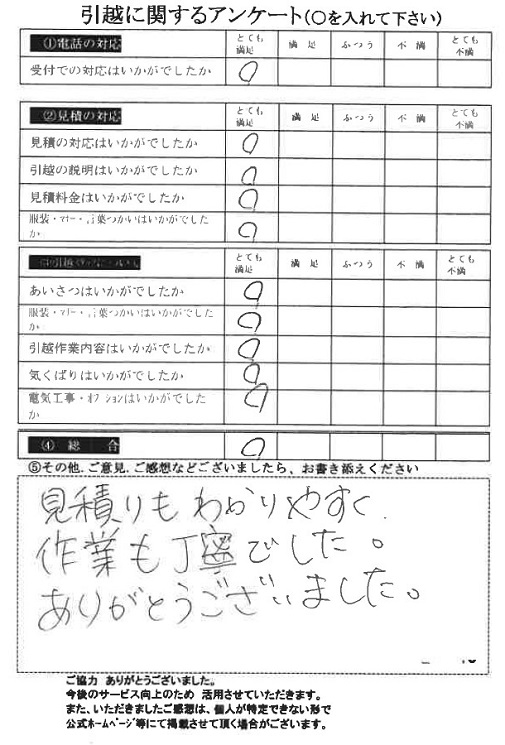 引越に関するアンケート(○を入れて下さい)
①電話の対応 とても満足 満足 ふつう 不満 とても不満
受付での対応はいかがでしたか ○
②見積の対応 とても満足 満足 ふつう 不満 とても不満
見積の対応はいかがでしたか ○
引越の説明はいかがでしたか ○
見積料金はいかがでしたか ○
服装・マナー・言葉つかいはいかがでしたか ○
とても満足 満足 ふつう 不満 とても不満
あいさつはいかがでしたか ○
服装・マナー・言葉つかいはいかがでしたか ○
引越作業内容はいかがでしたか ○
気くばりはいかがでしたか ○
電気工事・オプションはいかがでしたか ○
④総合 ○
⑤その他.ご意見.ご感想などございましたら、お書き添えください
見積りもわかりやすく、
作業も丁寧でした。
ありがとうございました。
ご協力 ありがとうございました。
今後のサービス向上のため 活用させていただきます。
また、いただきましたご感想は、個人が特定できない形で
公式ホームページ等にて掲載させて頂く場合がございます。